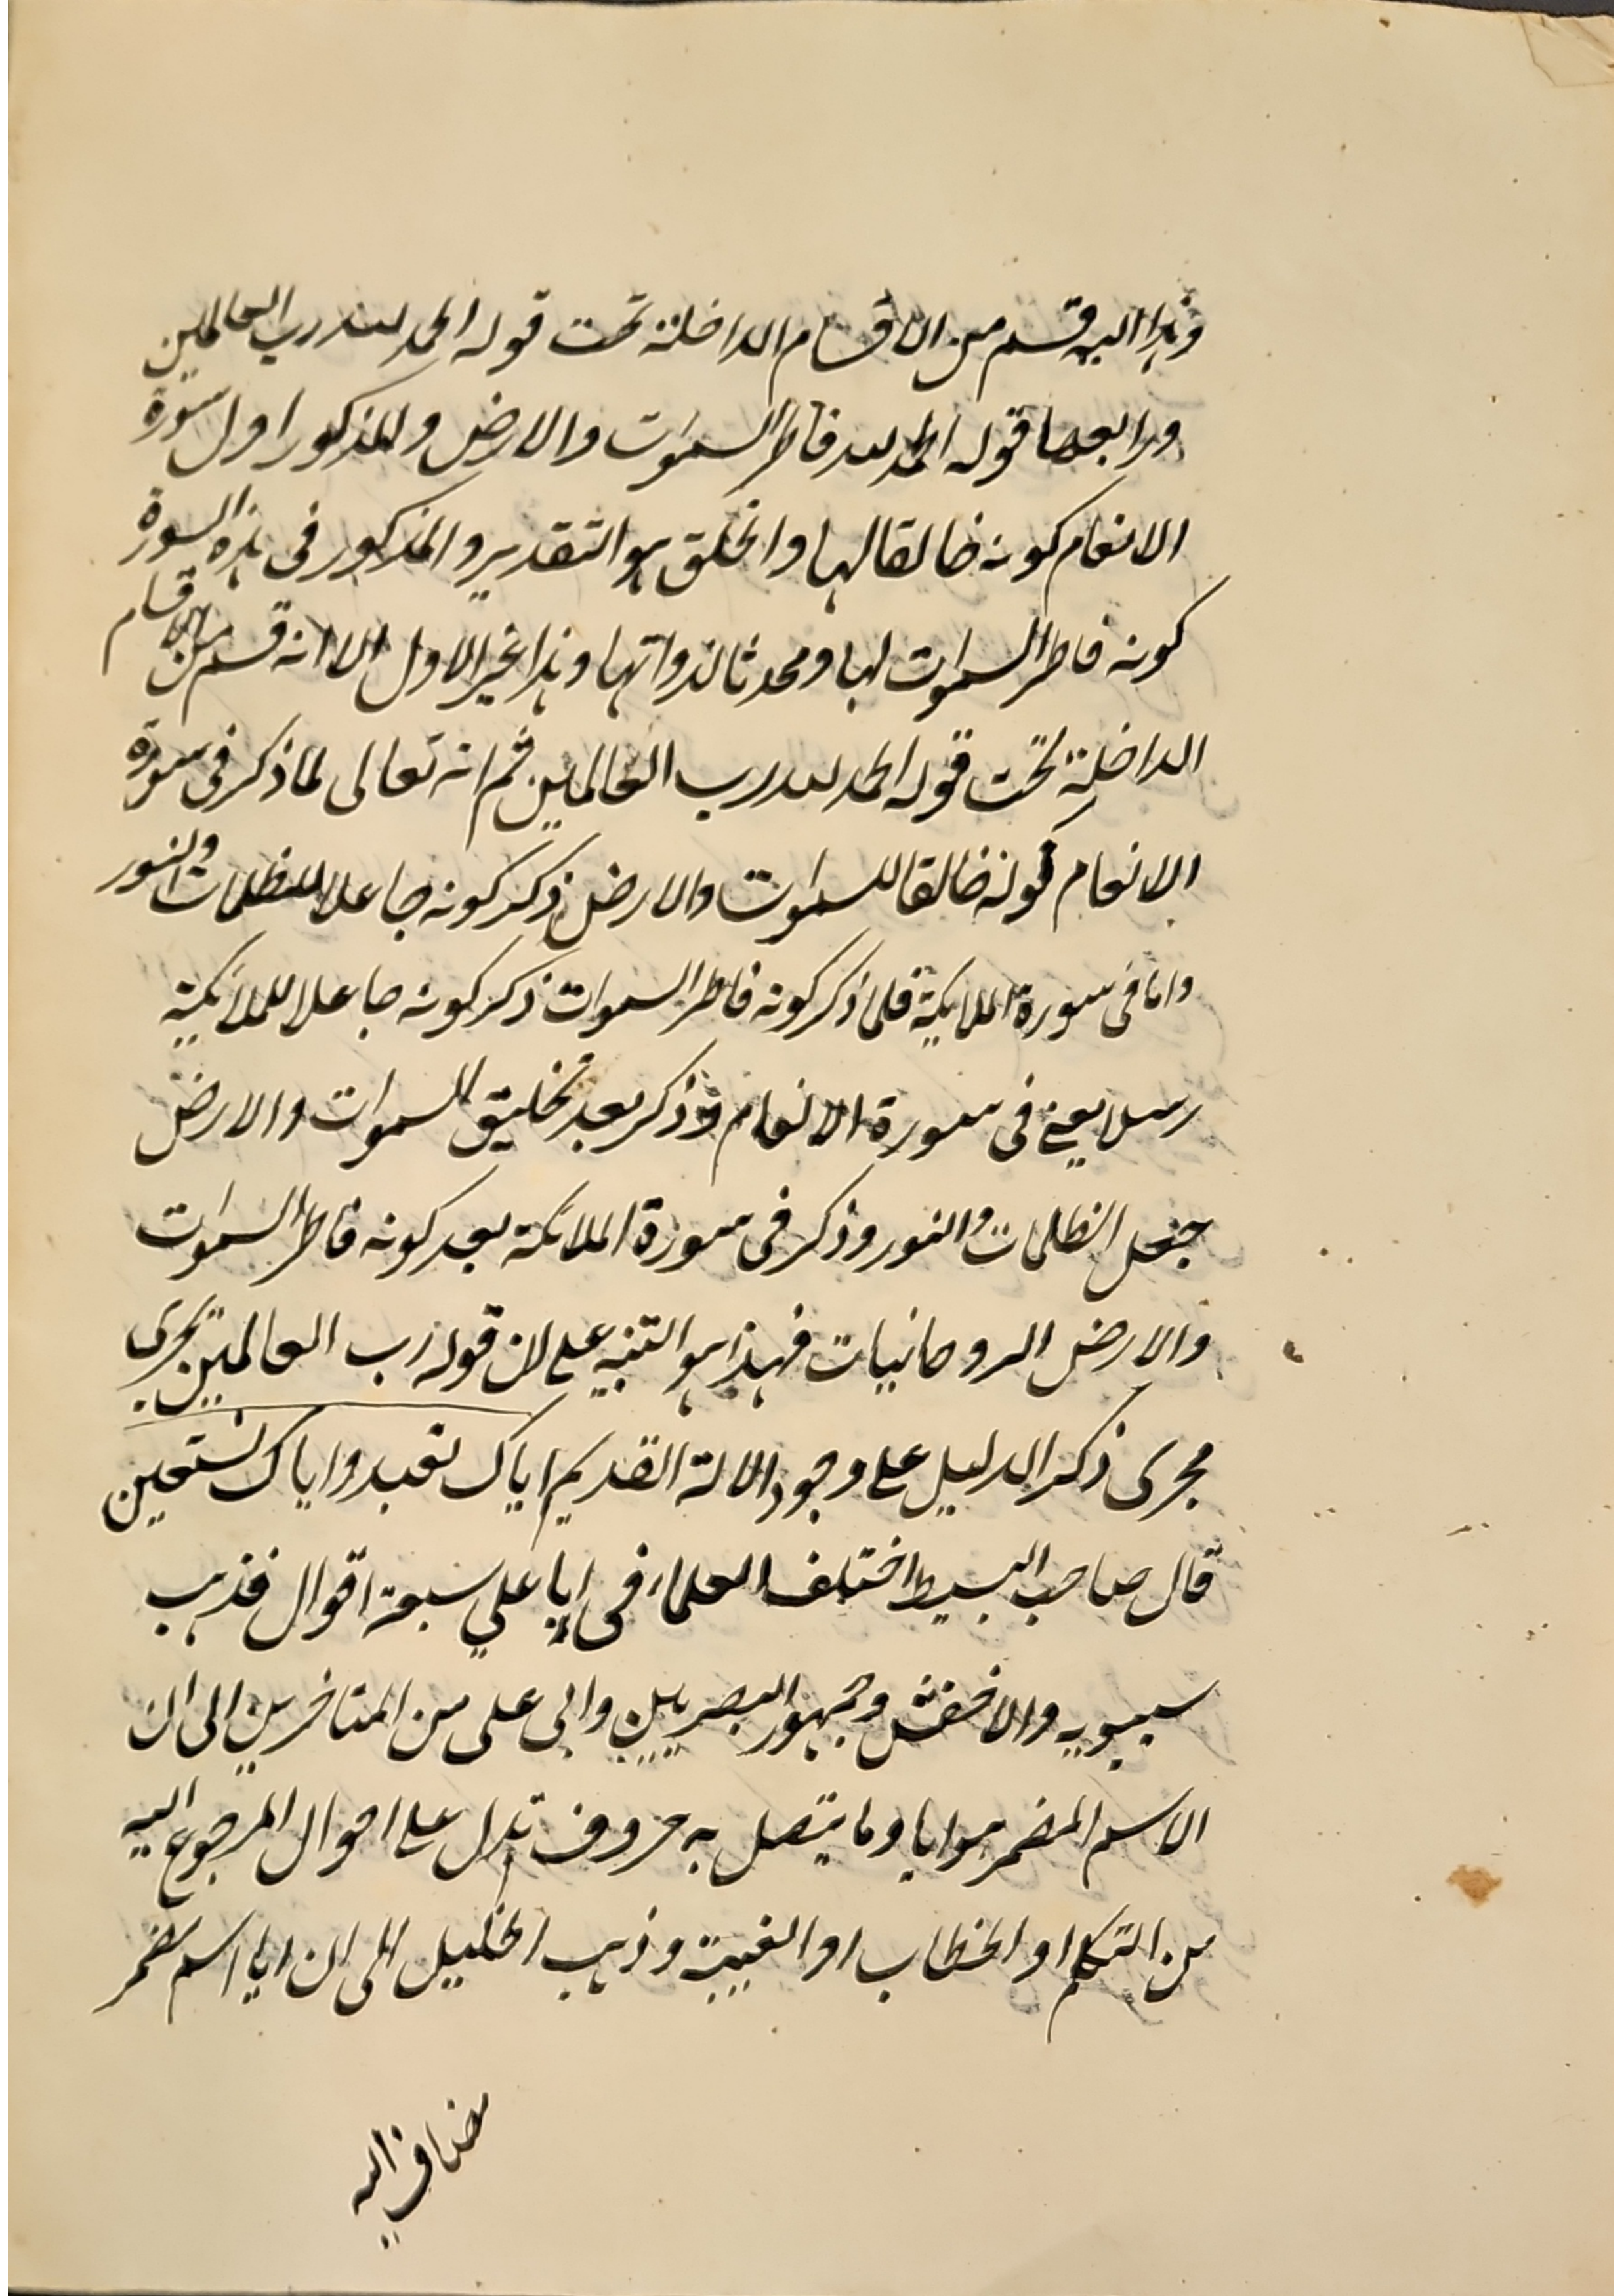 وهذا اليه قسم من الاقسام الداخلة تحت قوله الحمد لله رب العالمين
ورابعها قوله الحمد لله فاطر السموات والارض والمذكور اول سورة
الانعام كونه خالقا لها والخلق هو التقدير والمذكور فى هذه السورة
كونه فاطر السموات لها ومحدثا لذواتها وهذا غير الاول الا انه قسم من الاقسام
الداخلة تحت قوله الحمد لله رب العالمين ثم انه تعالى لما ذكر فى سورة
الانعام كونه خالقا للسموات والارض ذكر كونه جاعلا للظلمات والنور
واما فى سورة الملايكة فلما ذكر كونه فاطر السموات ذكر كونه جاعلا للملائكية
رسلا يعنى فى سورة الانعام وذكر بعد تخليق السموات والارض
جعل الظلمات والنور وذكر فى سورة الملائكة بعد كونه فاطر السموات
والارض الروحانيات فهذا هو التنبيه على لان قوله رب العالمين يجرى
مجرى ذكر الدليل على وجود الاله القديم اياك نعبد واياك نستعين
قال صاحب البسيط اختلف العلماء فى ايا على سبعة اقوال فذهب
سيبويه والاخفش وجمهور البصريين وابى على من المتاخرين الى ان
الاسم المضمر هو ايا وما يتصل به حروف تدل على احوال المرجوع اليه
من التكلم او الخطاب او الغيبة وذهب الخليل الى ان ايا اسم مضمر
مضاف اليه